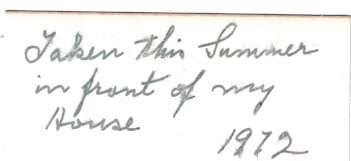 Taken this Summer
in front of my
House
1972